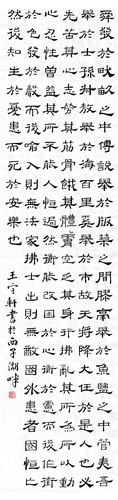 舜發於畎畝之中傅說舉於版築之間膠鬲舉於魚鹽之中管夷吾
舉於士孫叔敖舉於海百里奚舉於市故天將降大任於是人也必
先苦其心志勞其筋骨餓其體膚空乏其身行拂亂其所為所以動
心忍性曾益其所不能人恒過然後能改困於心衡於慮而後作徵
於色發於聲而後喻入則無法家拂士出則無敵國外患者國恒亡
然後知生於憂患而死於安樂也
王宇軒書於西子湖畔